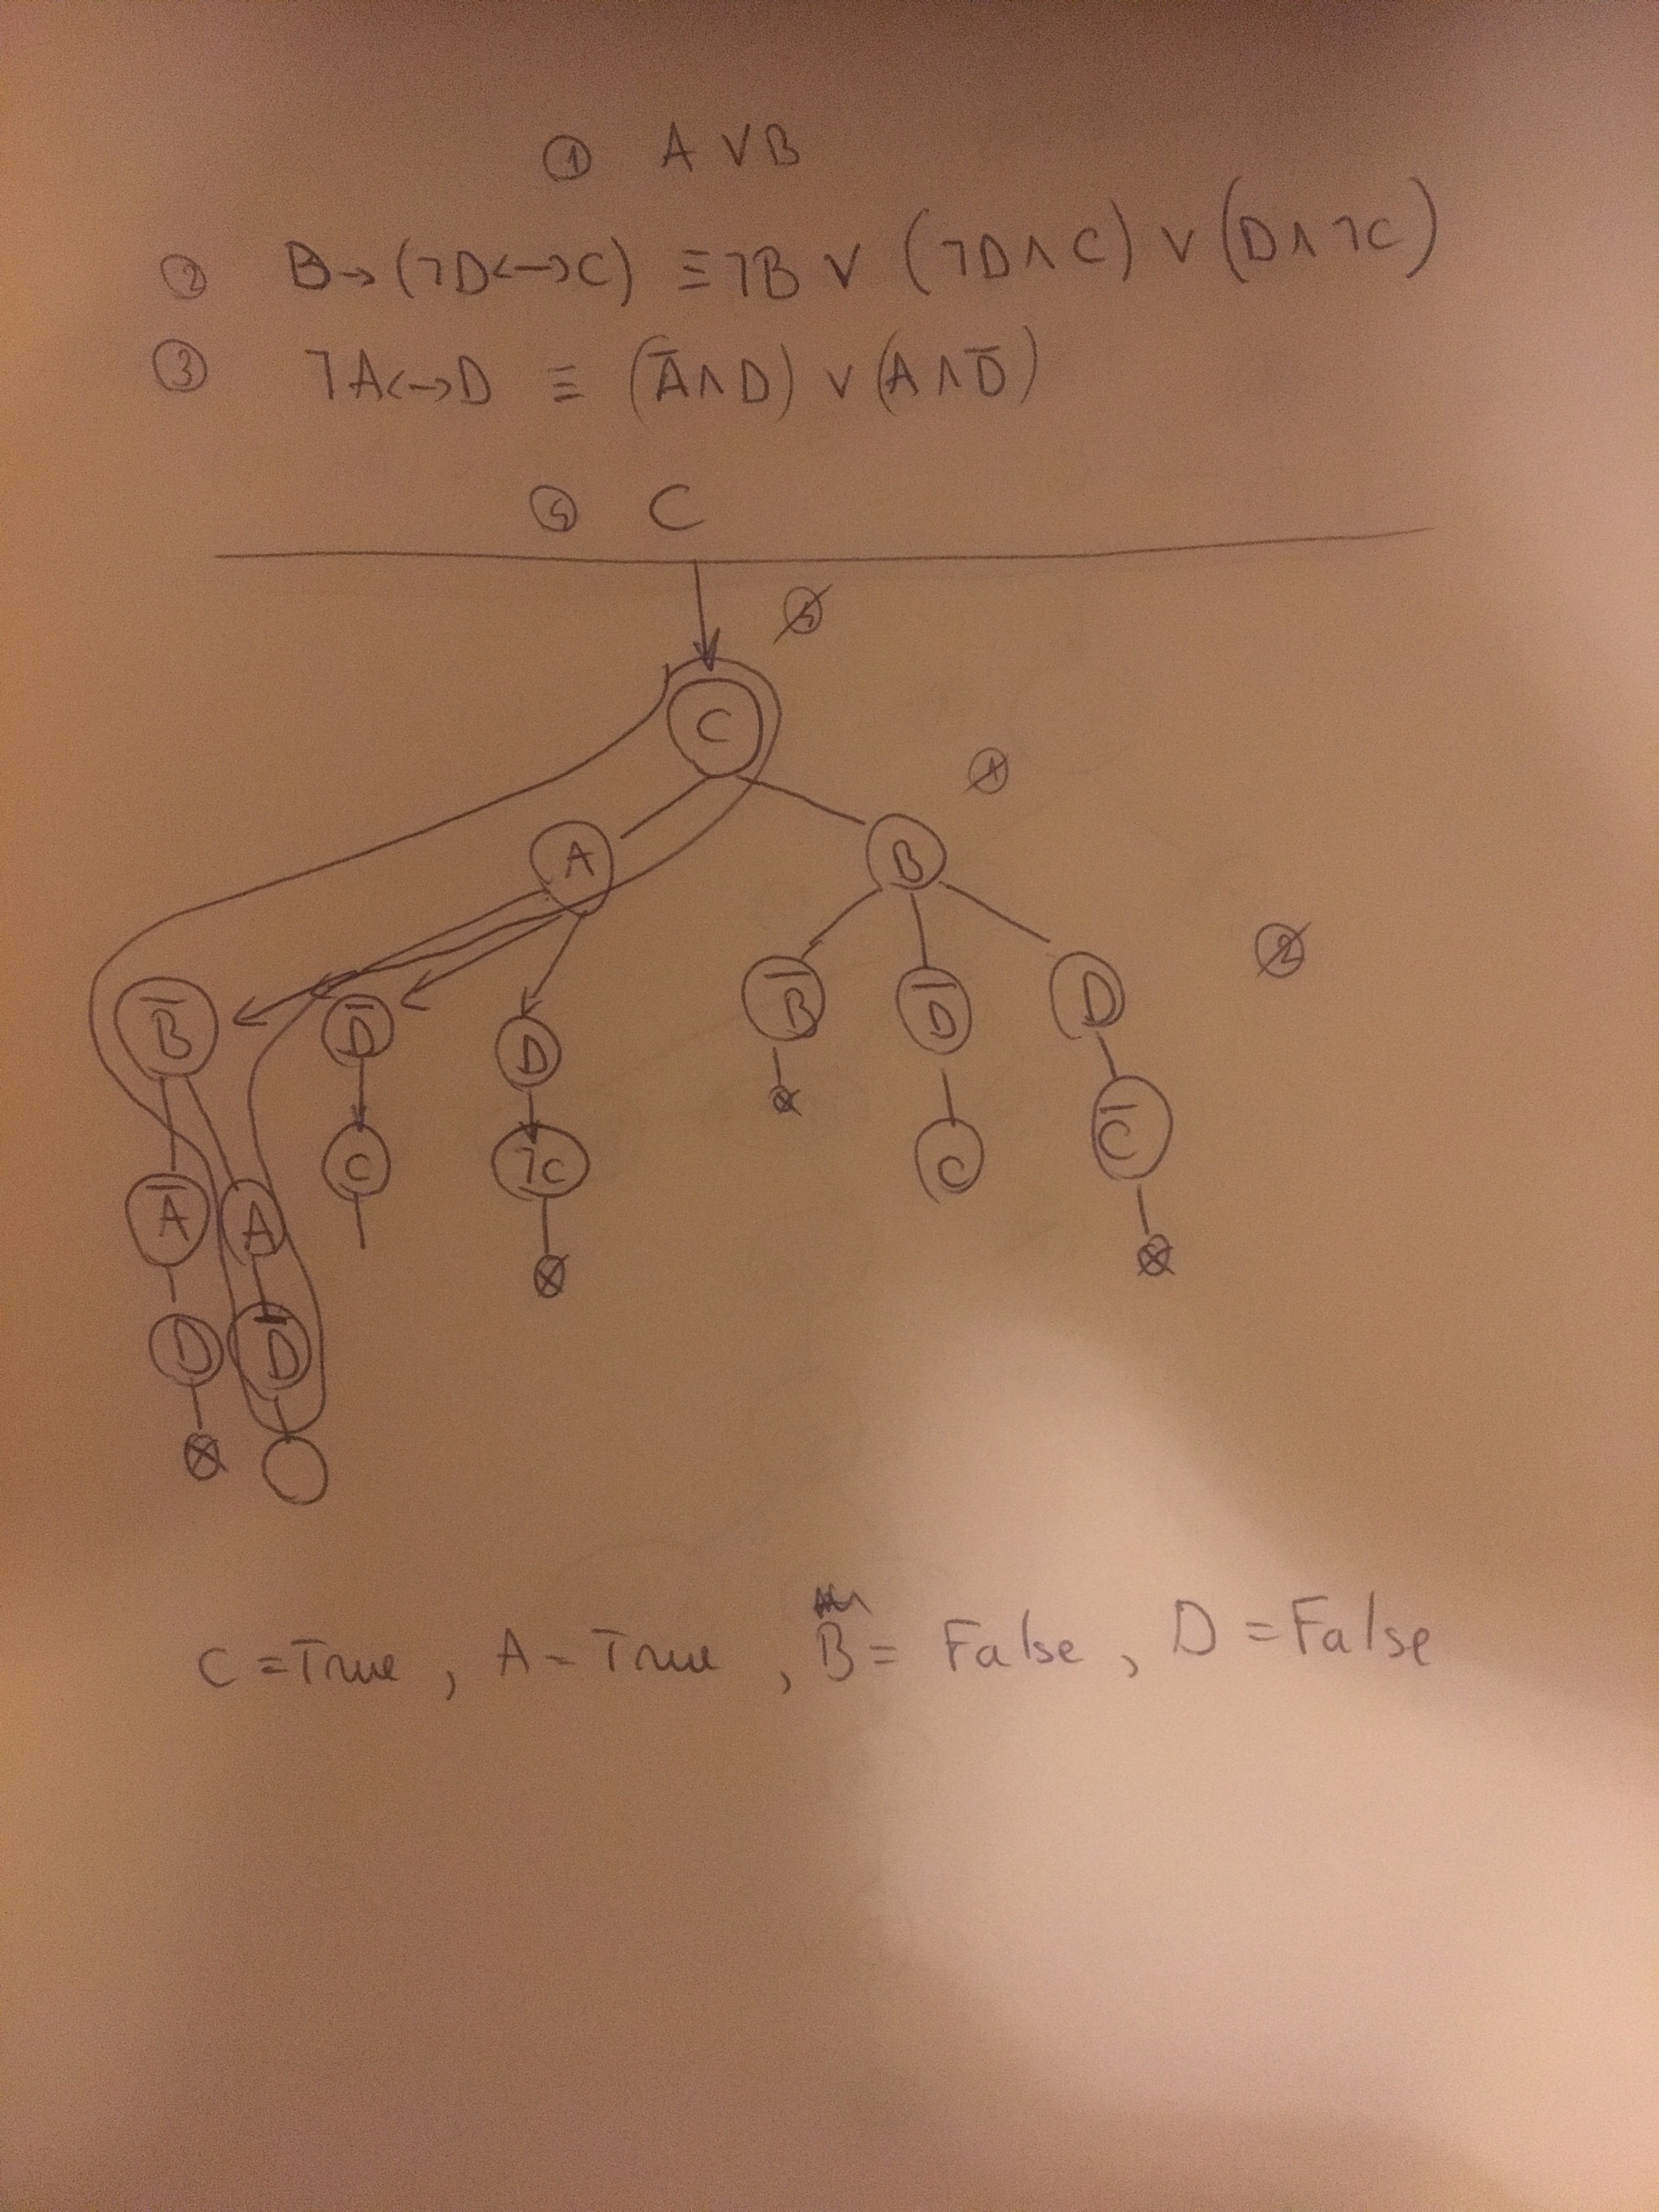 ① A ∨ B
② B → (¬D ↔ C) ≡ ¬B ∨ (¬D ∧ C) ∨ (D ∧ ¬C)
③ ¬A ↔ D ≡ (A̅ ∧ D) ∨ (A ∧ D̅)
C
C
①
A B
②
B̅ D̅ D B̅ D̅ D
C ¬C C C̅
A̅ A
D D̅
C = True , A = True , B = False , D = False